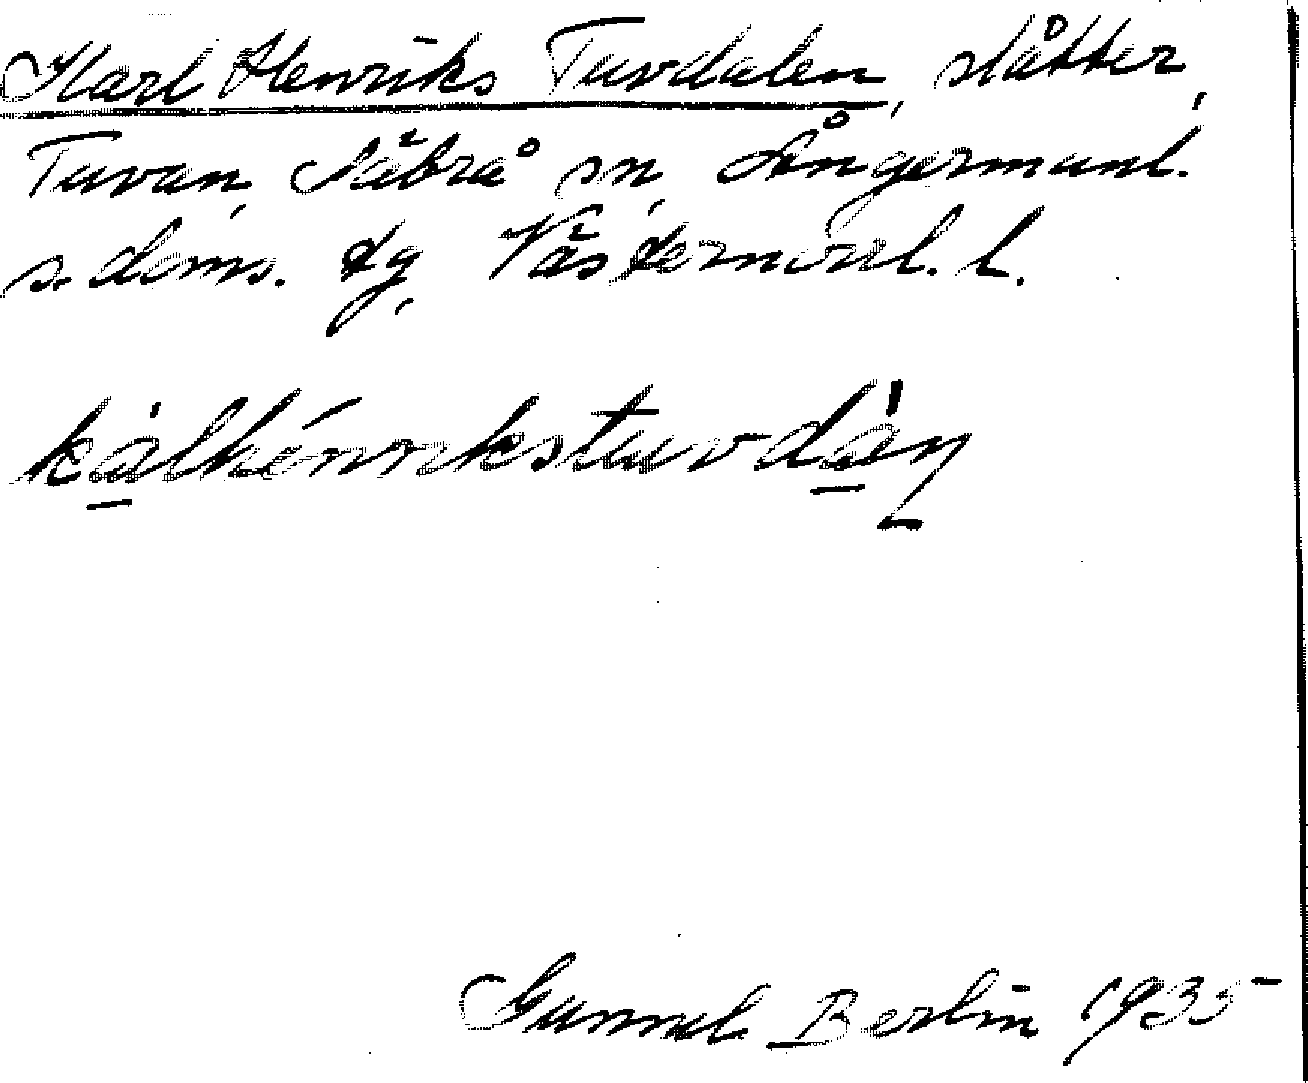 Karl Henriks Tuvdalen, slåtter,
Tuvan, Säbrå sn, Ångermanl.
s. doms. tg, Västernorrl. l.
kàlhénrikstuvdáṇ
Gunnel Berlin 1935